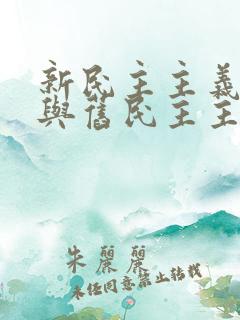 新民主主義
與舊民主主
朱麗麗
未经同意禁止转载